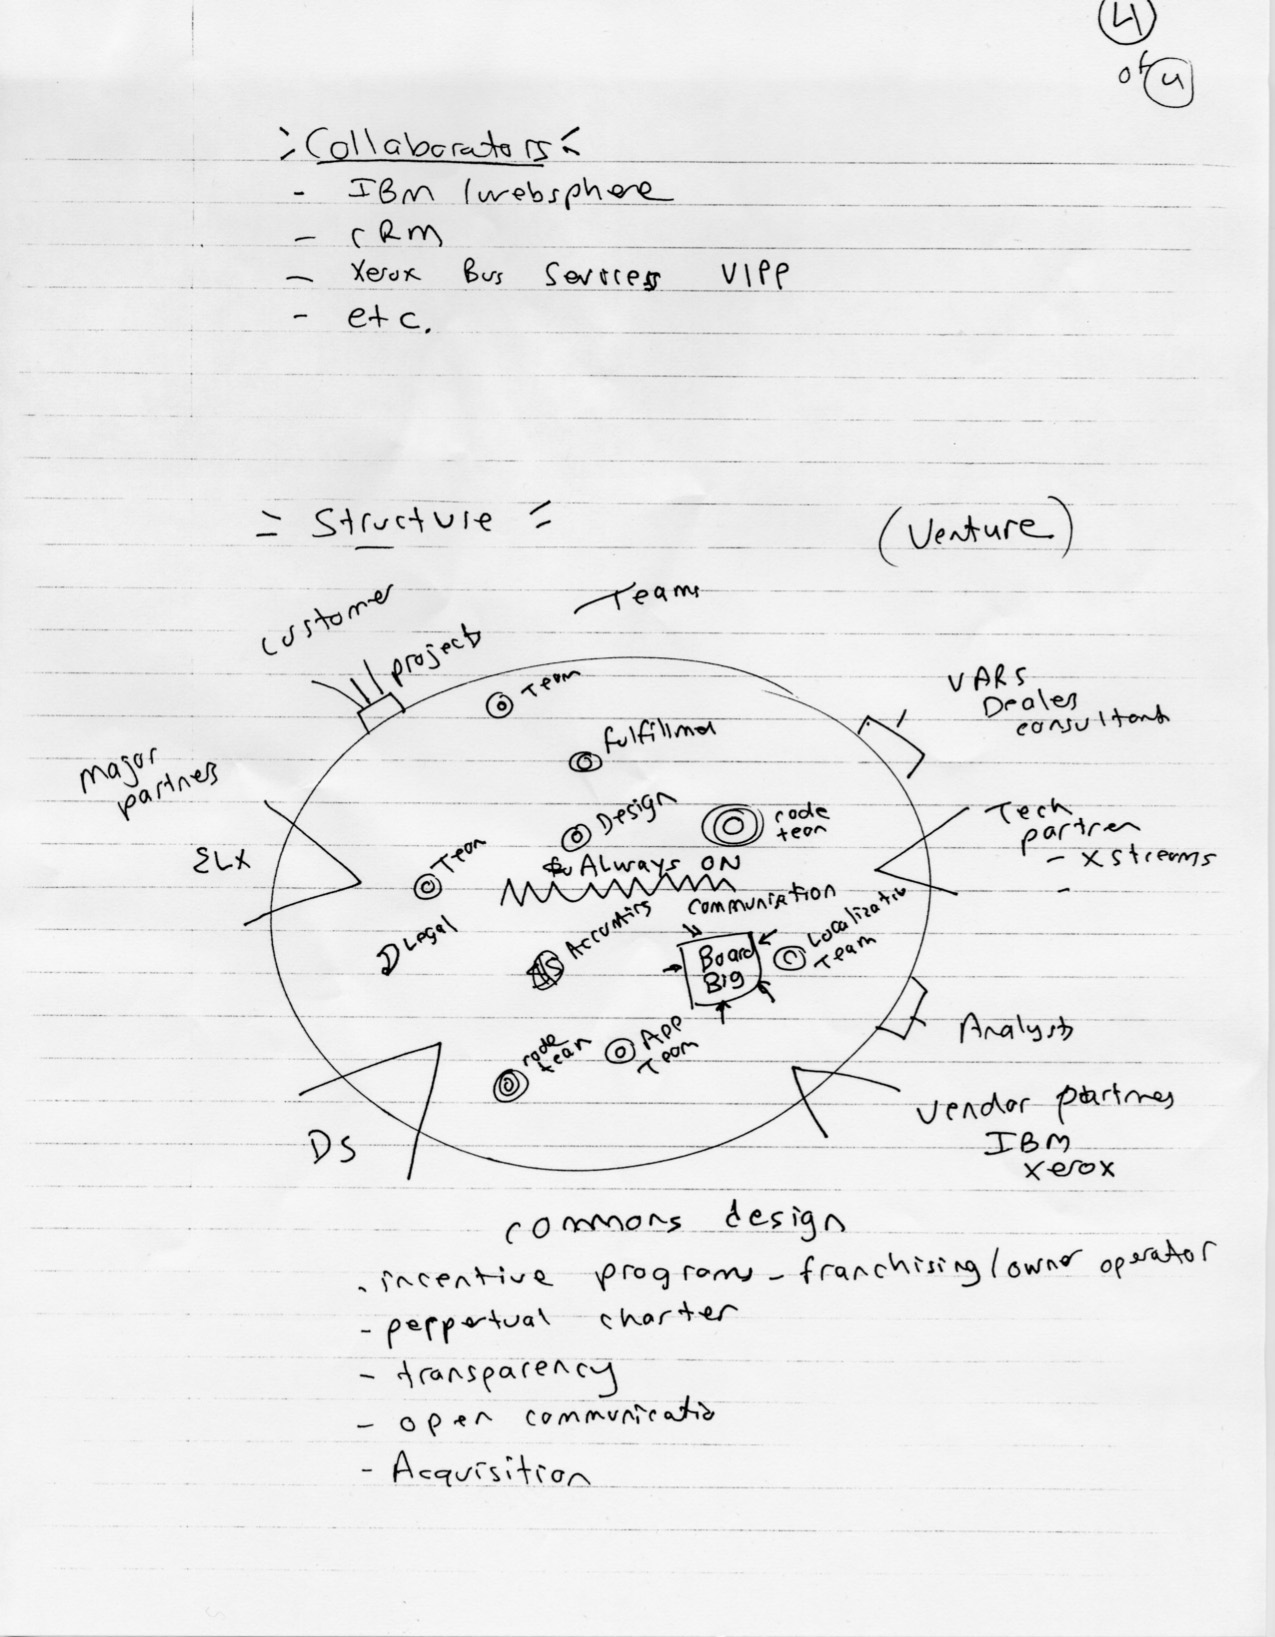 4
of 4
Collaborators
- IBM / websphere
- CRM
- Xerox Bus Services VIPP
- etc.
= Structure =
(Venture)
Teams
customer
projects
Team
fulfillment
VARS
Deales
consultant
major
partners
ELX
Design
code
team
Team
Always ON
communication
Tech
partner
- Xstreams
-
Legal
Accounting
Board
Big
Localization
Team
code
team
App
Team
Analysts
DS
Vendor partners
IBM
Xerox
commons design
. incentive programs - franchising / owner operator
- peppertual charter
- transparency
- open communicatio
- Acquisition